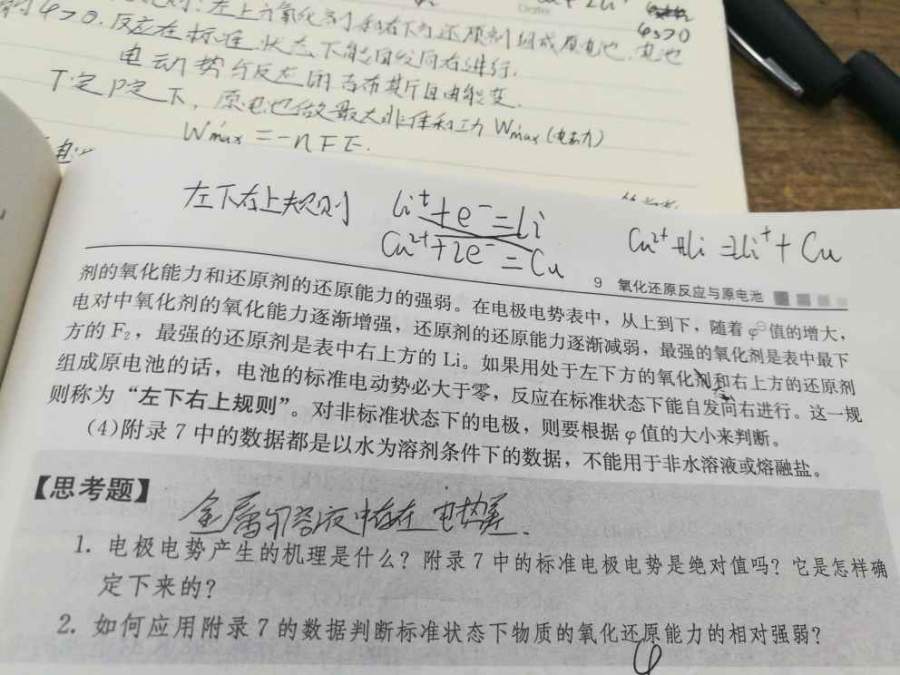 φ>0
规则：左上方氧化剂和右下方还原剂组成原电池，电池
的φ>0. 反应在标准状态下能自发向右进行.
电动势与反应的吉布斯自由能变.
T定P定下，原电池做最大非体积功 W'max (电功)
W'max = -nFE.
左下右上规则
Li⁺+e⁻=Li
Cu²⁺+2e⁻=Cu
Cu²⁺+Li=2Li⁺+Cu
9 氧化还原反应与原电池
剂的氧化能力和还原剂的还原能力的强弱。在电极电势表中，从上到下，随着φ⊖值的增大，
电对中氧化剂的氧化能力逐渐增强，还原剂的还原能力逐渐减弱，最强的氧化剂是表中最下
方的F₂，最强的还原剂是表中右上方的Li。如果用处于左下方的氧化剂和右上方的还原剂
组成原电池的话，电池的标准电动势必大于零，反应在标准状态下能自发向右进行。这一规
则称为“左下右上规则”。对非标准状态下的电极，则要根据φ值的大小来判断。
(4)附录7中的数据都是以水为溶剂条件下的数据，不能用于非水溶液或熔融盐。
【思考题】
金属和溶液中存在电势差.
1. 电极电势产生的机理是什么？附录7中的标准电极电势是绝对值吗？它是怎样确
定下来的？
2. 如何应用附录7的数据判断标准状态下物质的氧化还原能力的相对强弱？
φ